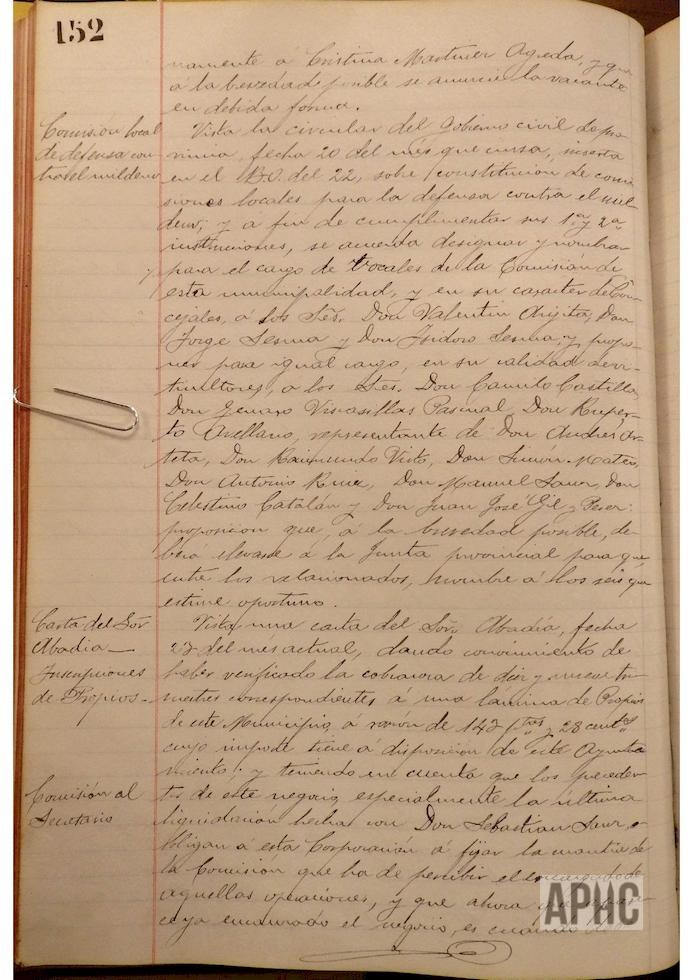 152
namente á Cristina Martinez Agreda, y que
á la brevedad posible se anuncie la vacante
en debida forma.
Comision local
de defensa con
tra el mildew
Vista la circular del Gobierno civil de pro
vincia, fecha 20 del mes que cursa, inserta
en el B.O. del 22, sobre constitución de comi
siones locales para la defensa contra el mil-
deu; y a fin de cumplimentar sus 1ª y 2ª
instrucciones, se acuerda designar y nombrar
para el cargo de Vocales de la Comisión de
esta municipalidad, y en su caracter de Con-
cejales, á los Sres. Don Valentin Argita, Don
Jorge Sesma y Don Isidoro Sesma, y propo-
ner para igual cargo, en su calidad de vi-
ticultores, a los Sres. Don Camilo Castilla,
Don Genaro Viscasillas Pascual, Don Ruper-
to Arellano, representante de Don Andres Ar-
teta, Don Raimundo Virto, Don Simón Mateo,
Don Antonio Don Manuel Don
Celestino Catalán y Don Juan José Gil y
proposicion que, á la brevedad posible, de-
berá elevarse á la Junta provincial para que
entre los relacionados, nombre á los seis que
estime oportuno.
Carta del Sor
Abadia —
Inscripciones
de Propios -
Vista una carta del Sor. Abadía, fecha
27 del mes actual, dando conocimiento de
haber verificado la cobranza de diez y nueve tri
mestres correspondientes á una lámina de Propios
de este Municipio, á razon de 142 ptas y 28 cents
cuyo importe tiene á disposición de este Ayunta
miento; y teniendo en cuenta que los preceden-
tes de este negocio, especialmente la última
Comisión al
Secretario
liquidacion hecha con Don Sebastian o-
bligan a esta Corporacion á fijar la cuantia de
la Comisión que ha de percibir el encargado de
aquellas operaciones, y que ahora que
ce ya encauzado el negocio, es cuando
APHC